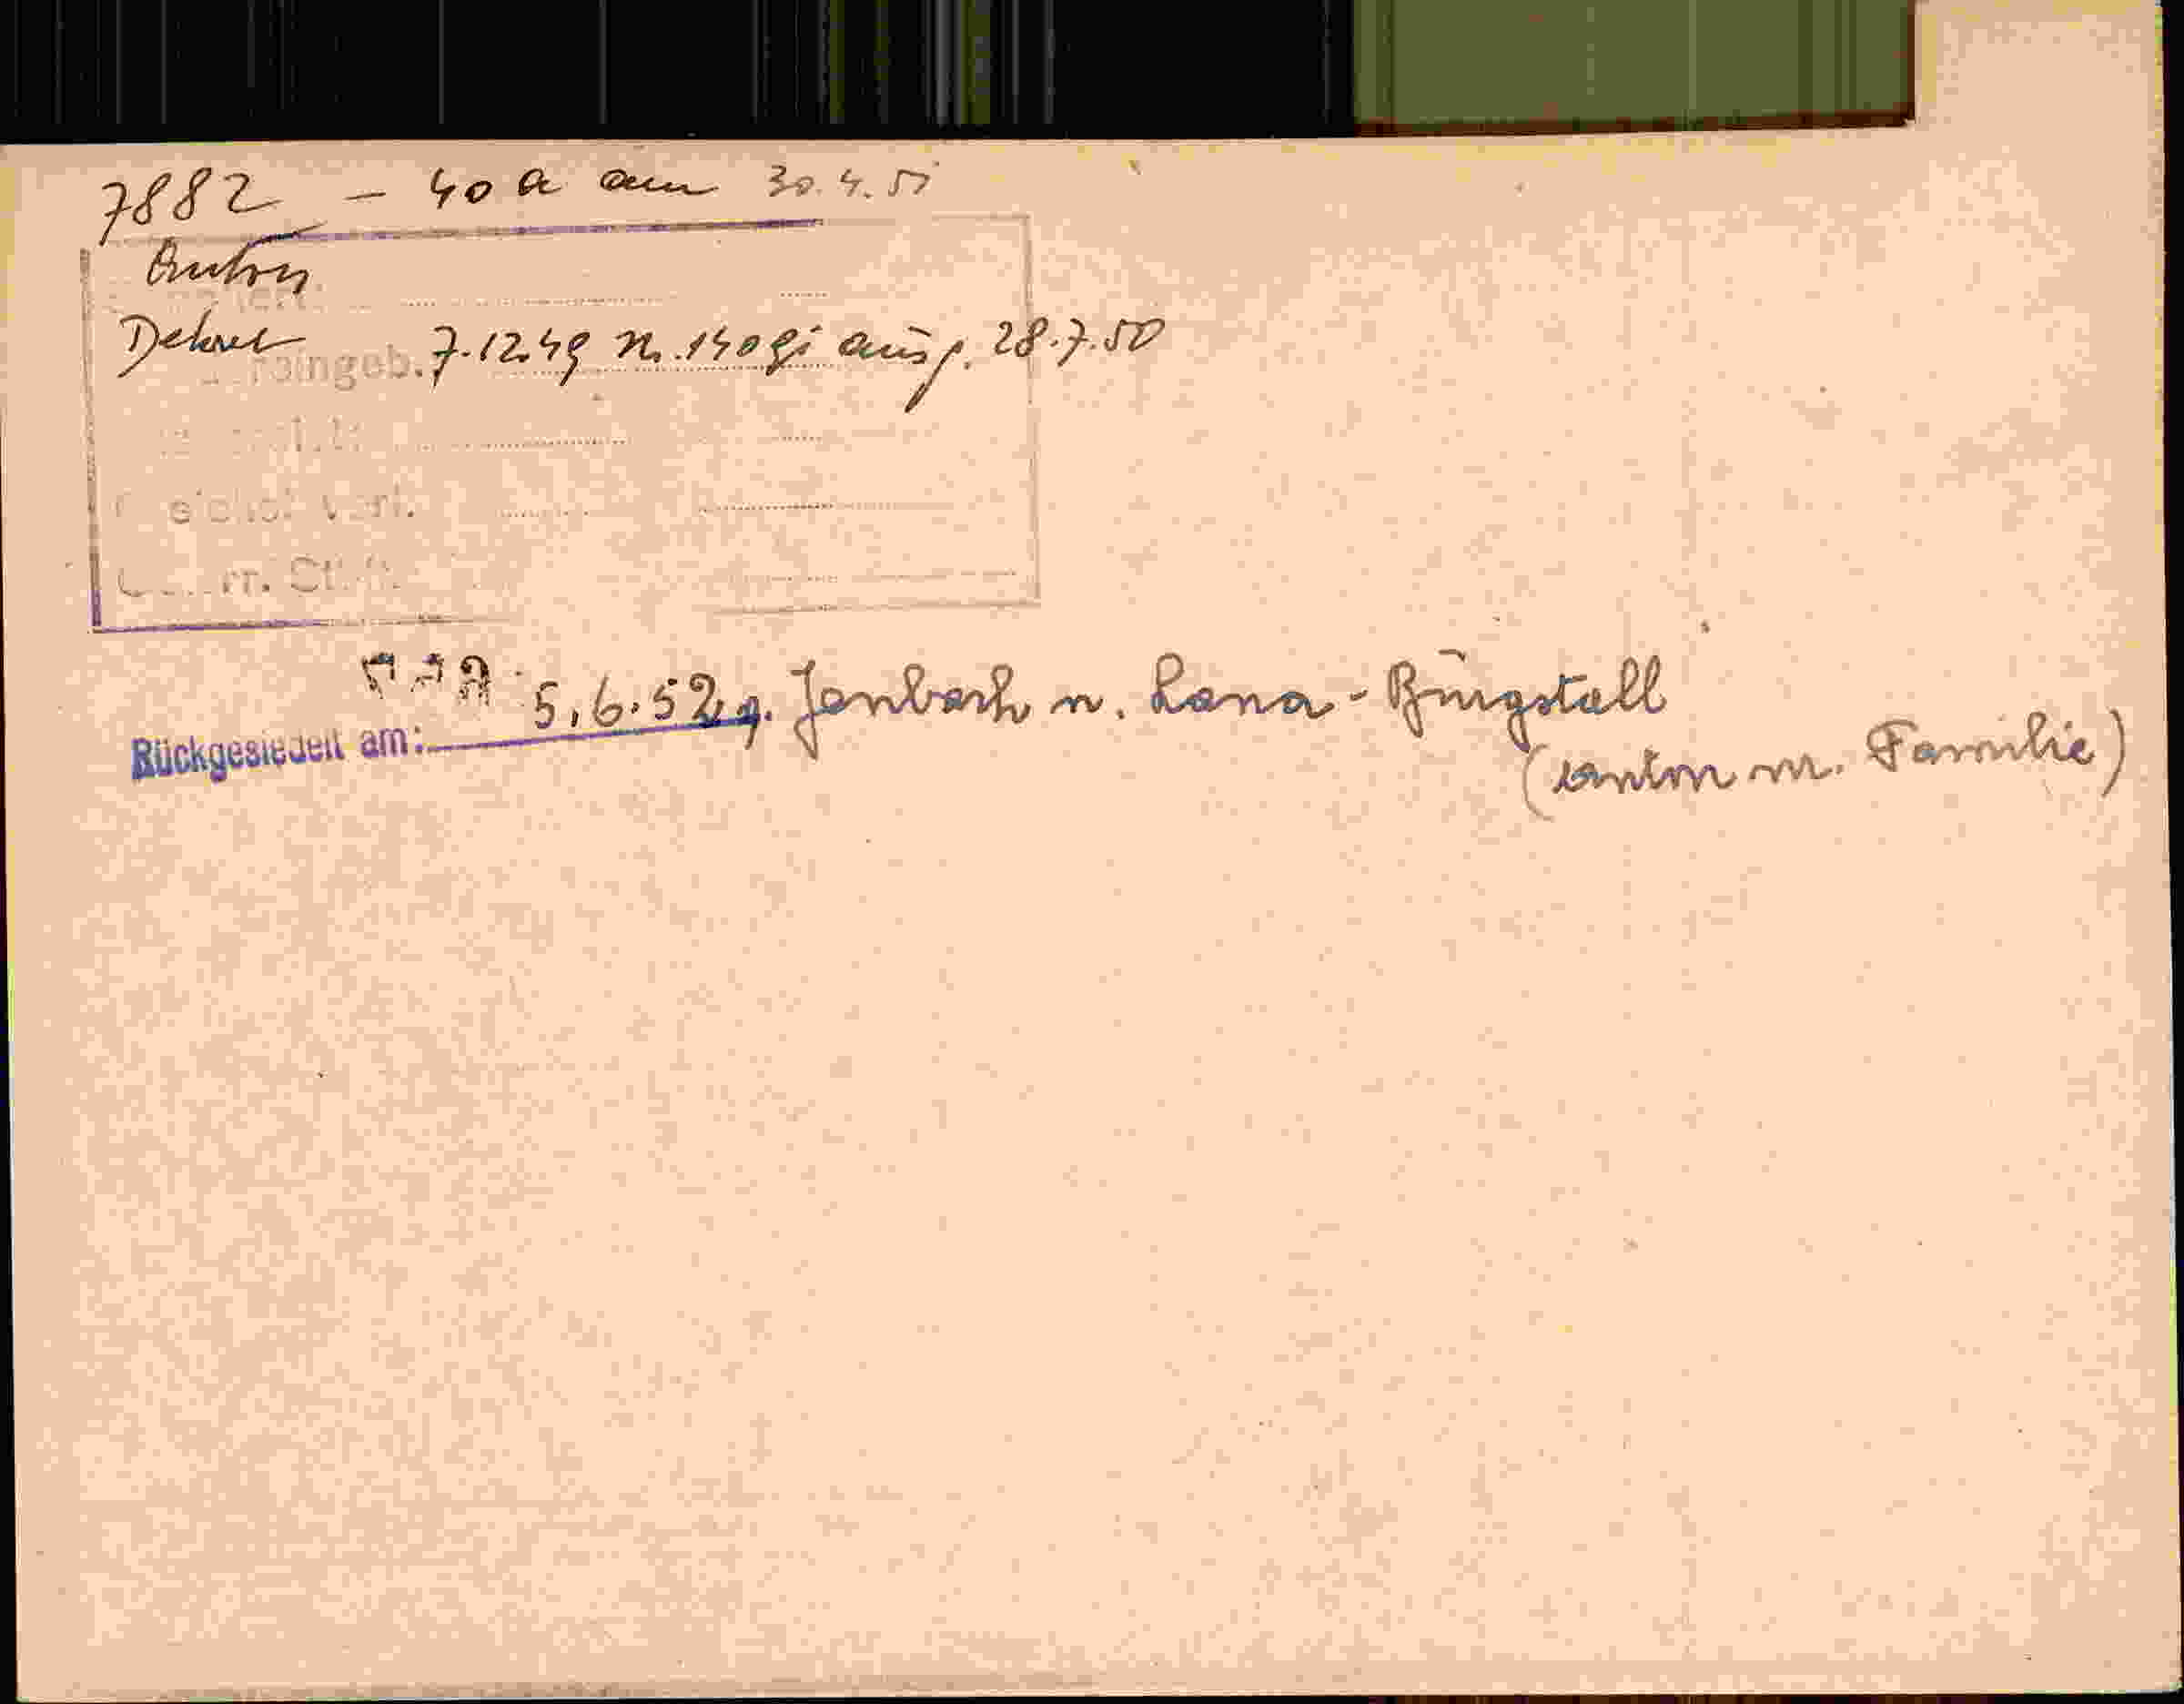 7882 - 40 a am 30.4.51
Anton
Dekret 7.12.49 N. 14091 ausg. 28.7.50
eingeb.
5.6.52 v. Jenbach n. Lana-Burgstall
Rückgesiedelt am:
(Anton m. Familie)